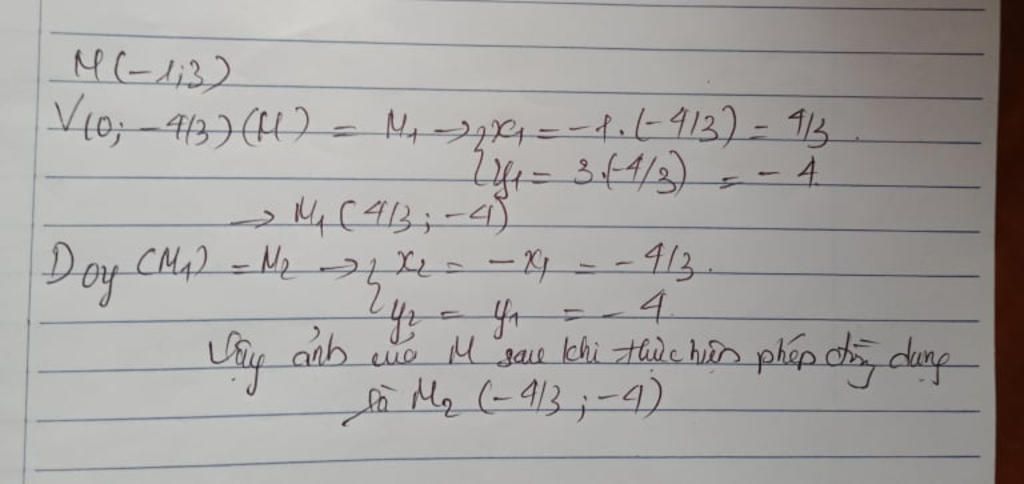 M(-1;3)
V(O; -4/3)(M) = M1 → { x1 = -1.(-4/3) = 4/3.
{ y1 = 3.(-4/3) = -4.
→ M1 (4/3; -4)
Doy (M1) = M2 → { x2 = -x1 = -4/3.
{ y2 = y1 = -4.
Vậy ảnh của M sau khi thực hiện phép đồng dạng
là M2 (-4/3; -4)